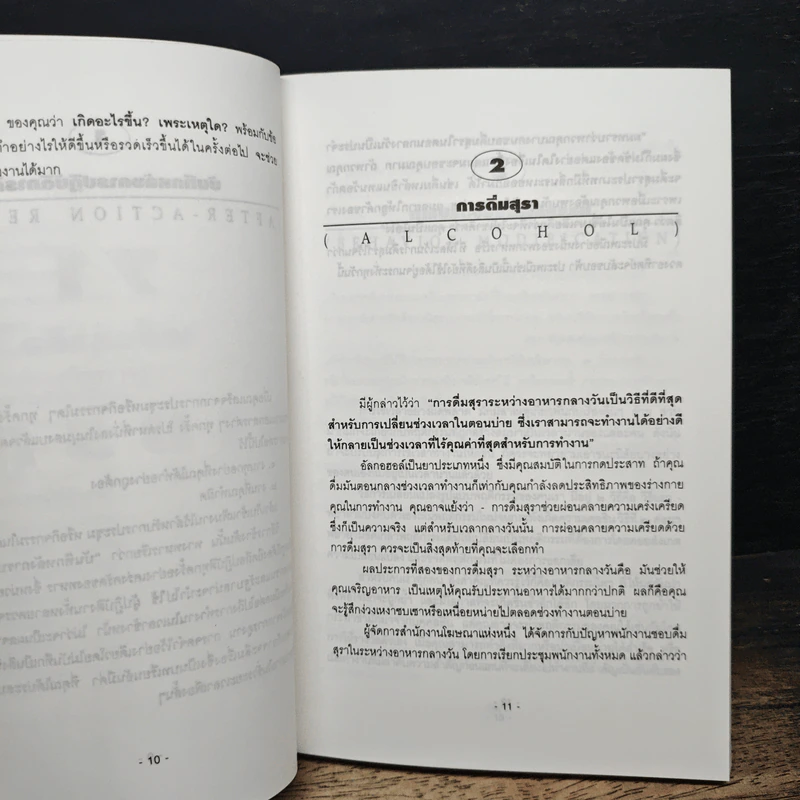 ของคุณว่า เกิดอะไรขึ้น? เพระเหตุใด? พร้อมกับข้อ
ทำอย่างไรให้ดีขึ้นหรือรวดเร็วขึ้นได้ในครั้งต่อไป จะช่วย
งานได้มาก
- 10 -
2
การดื่มสุรา
( A L C O H O L )
มีผู้กล่าวไว้ว่า "การดื่มสุราระหว่างอาหารกลางวันเป็นวิธีที่ดีที่สุด
สำหรับการเปลี่ยนช่วงเวลาในตอนบ่าย ซึ่งเราสามารถจะทำงานได้อย่างดี
ให้กลายเป็นช่วงเวลาที่ไร้คุณค่าที่สุดสำหรับการทำงาน"
อัลกอฮอล์เป็นยาประเภทหนึ่ง ซึ่งมีคุณสมบัติในการกดประสาท ถ้าคุณ
ดื่มมันตอนกลางช่วงเวลาทำงานก็เท่ากับคุณกำลังลดประสิทธิภาพของร่างกาย
คุณในการทำงาน คุณอาจแย้งว่า - การดื่มสุราช่วยผ่อนคลายความเคร่งเครียด
ซึ่งก็เป็นความจริง แต่สำหรับเวลากลางวันนั้น การผ่อนคลายความเครียดด้วย
การดื่มสุรา ควรจะเป็นสิ่งสุดท้ายที่คุณจะเลือกทำ
ผลประการที่สองของการดื่มสุรา ระหว่างอาหารกลางวันคือ มันช่วยให้
คุณเจริญอาหาร เป็นเหตุให้คุณรับประทานอาหารได้มากกว่าปกติ ผลก็คือคุณ
จะรู้สึกง่วงเหงาซบเซาหรือเหนื่อยหน่ายไปตลอดช่วงทำงานตอนบ่าย
ผู้จัดการสำนักงานโฆษณาแห่งหนึ่ง ได้จัดการกับปัญหาพนักงานชอบดื่ม
สุราในระหว่างอาหารกลางวัน โดยการเรียกประชุมพนักงานทั้งหมด แล้วกล่าวว่า
- 11 -